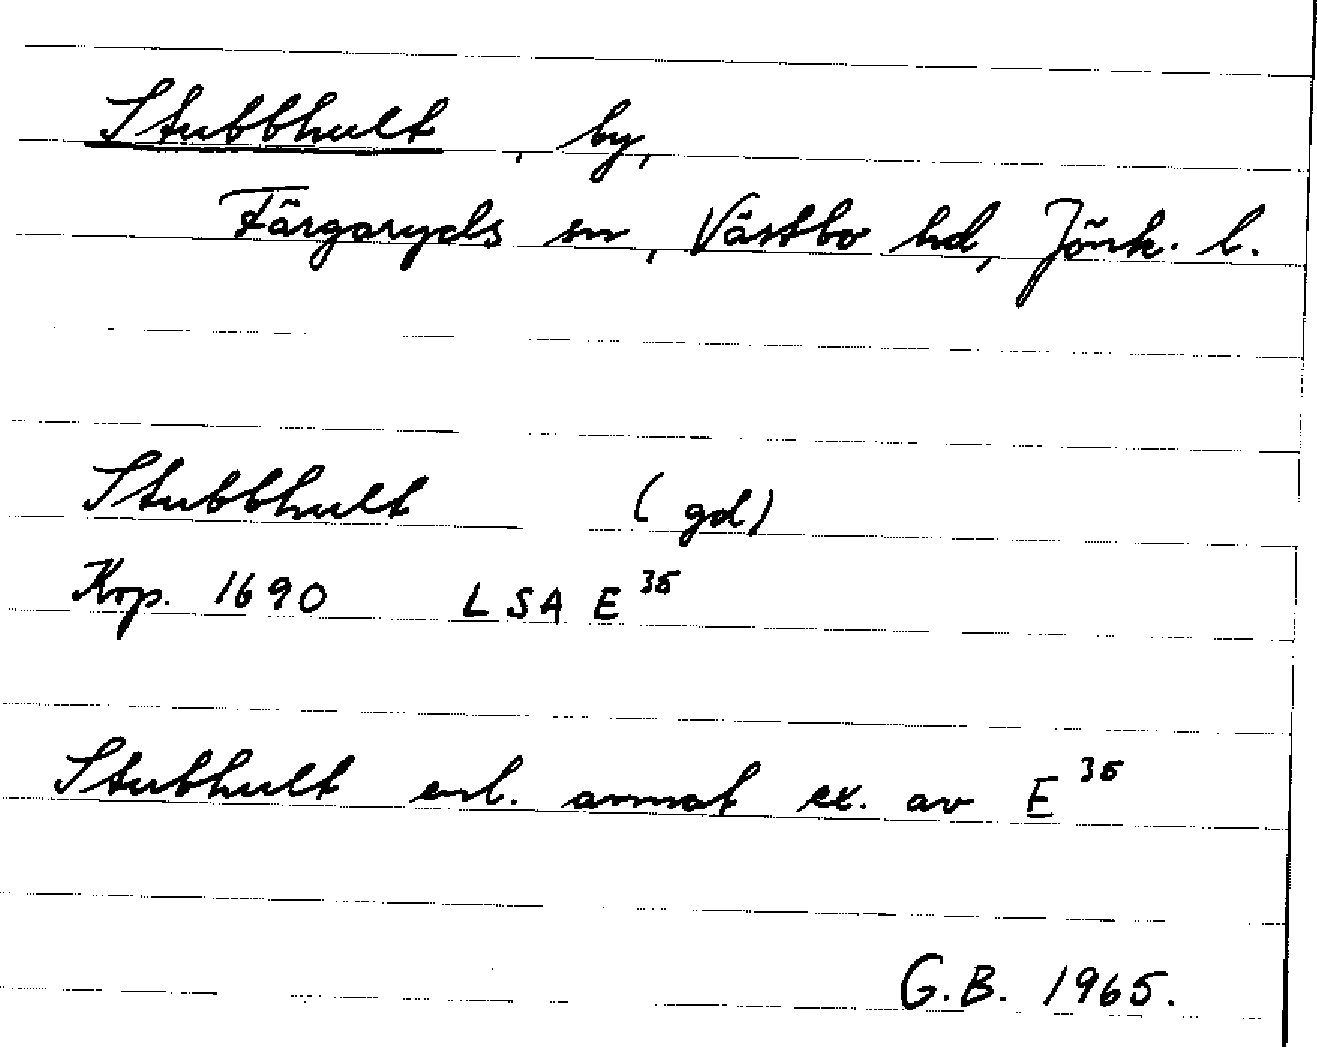 Stubbhult, by,
Färgaryds sn, Västbo hd, Jönk. l.
Stubbhult (gd)
Krp. 1690 LSA E 36
Stubhult enl. annat ex. av E 36
G.B. 1965.